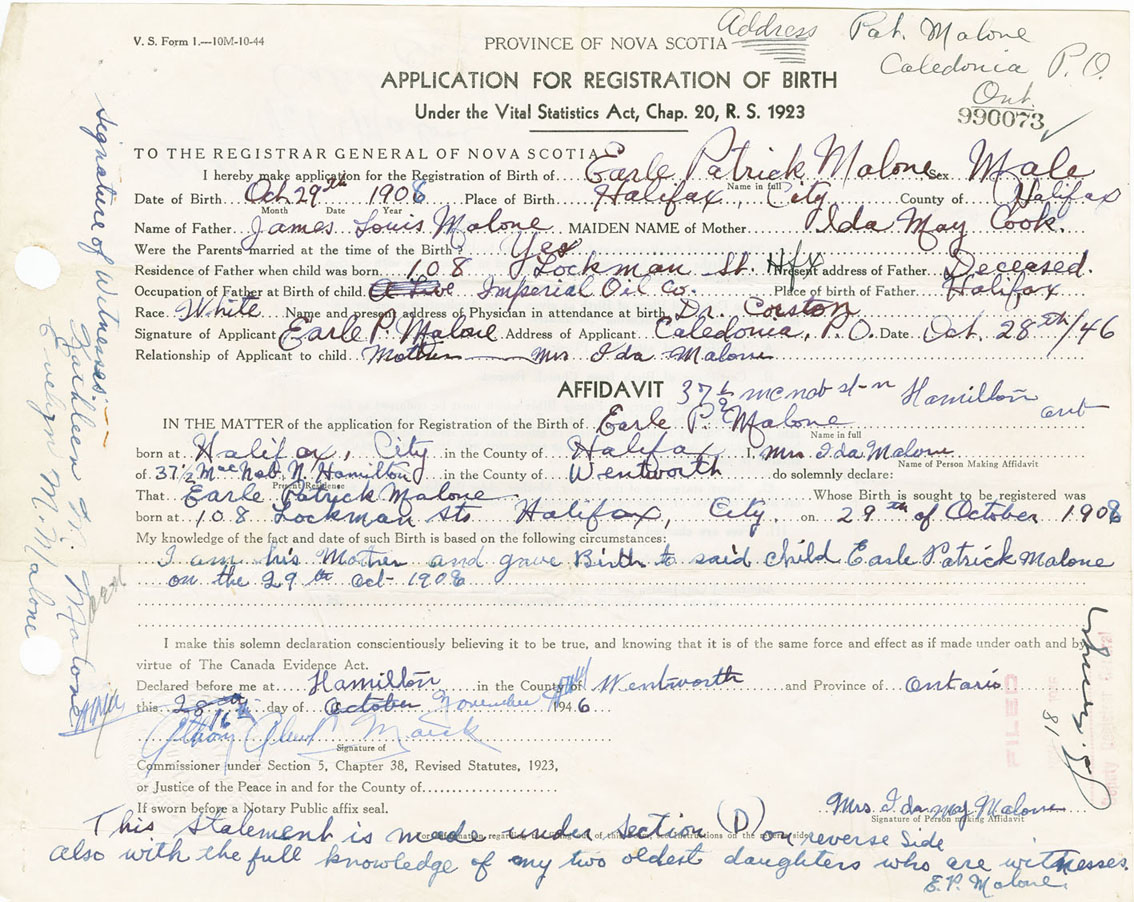 V. S. Form 1.—10M-10-44
Address Pat. Malone
PROVINCE OF NOVA SCOTIA
Caledonia P. O.
Ont.
APPLICATION FOR REGISTRATION OF BIRTH
Under the Vital Statistics Act, Chap. 20, R. S. 1923
990073
TO THE REGISTRAR GENERAL OF NOVA SCOTIA
I hereby make application for the Registration of Birth of Earle Patrick Malone Sex Male
Name in full
Date of Birth Oct 29th 1908 Place of Birth Halifax, City County of Halifax
Month Date Year
Name of Father James Louis Malone MAIDEN NAME of Mother Ida May Cook.
Were the Parents married at the time of the Birth? Yes
Residence of Father when child was born 108 Lockman St. Hfx Present address of Father Deceased.
Occupation of Father at Birth of child Imperial Oil Co. Place of birth of Father Halifax
Race White Name and present address of Physician in attendance at birth Dr. Corston
Signature of Applicant Earle P. Malone Address of Applicant Caledonia, P.O. Date Oct. 28th/46
Relationship of Applicant to child Mother — Mrs Ida Malone
AFFIDAVIT 37½ mcnab st-n Hamilton ont
IN THE MATTER of the application for Registration of the Birth of Earle P. Malone
Name in full
born at Halifax, City in the County of Halifax I, Mrs Ida Malone
Name of Person Making Affidavit
of 37½ Mac Nab. N. Hamilton in the County of Wentworth do solemnly declare:
Present Residence
That Earle Patrick Malone Whose Birth is sought to be registered was
born at 108 Lockman Sts Halifax, City. on 29th of October 1908
My knowledge of the fact and date of such Birth is based on the following circumstances:
I am his Mother and gave Birth to said child Earle Patrick Malone
on the 29th Oct- 1908
I make this solemn declaration conscientiously believing it to be true, and knowing that it is of the same force and effect as if made under oath and by
virtue of The Canada Evidence Act.
Declared before me at Hamilton in the County of Wentworth and Province of Ontario
this 28th 16th day of October November 1946
Signature of
Commissioner under Section 5, Chapter 38, Revised Statutes, 1923,
or Justice of the Peace in and for the County of
If sworn before a Notary Public affix seal.
Mrs. Ida may Malone
Signature of Person making Affidavit
This Statement is made under Section (D) on reverse side
also with the full knowledge of my two oldest daughters who are witnesses.
E. P. Malone.
Signature of Witnesses.—
Kathleen M. Malone
Evelyn M. Malone